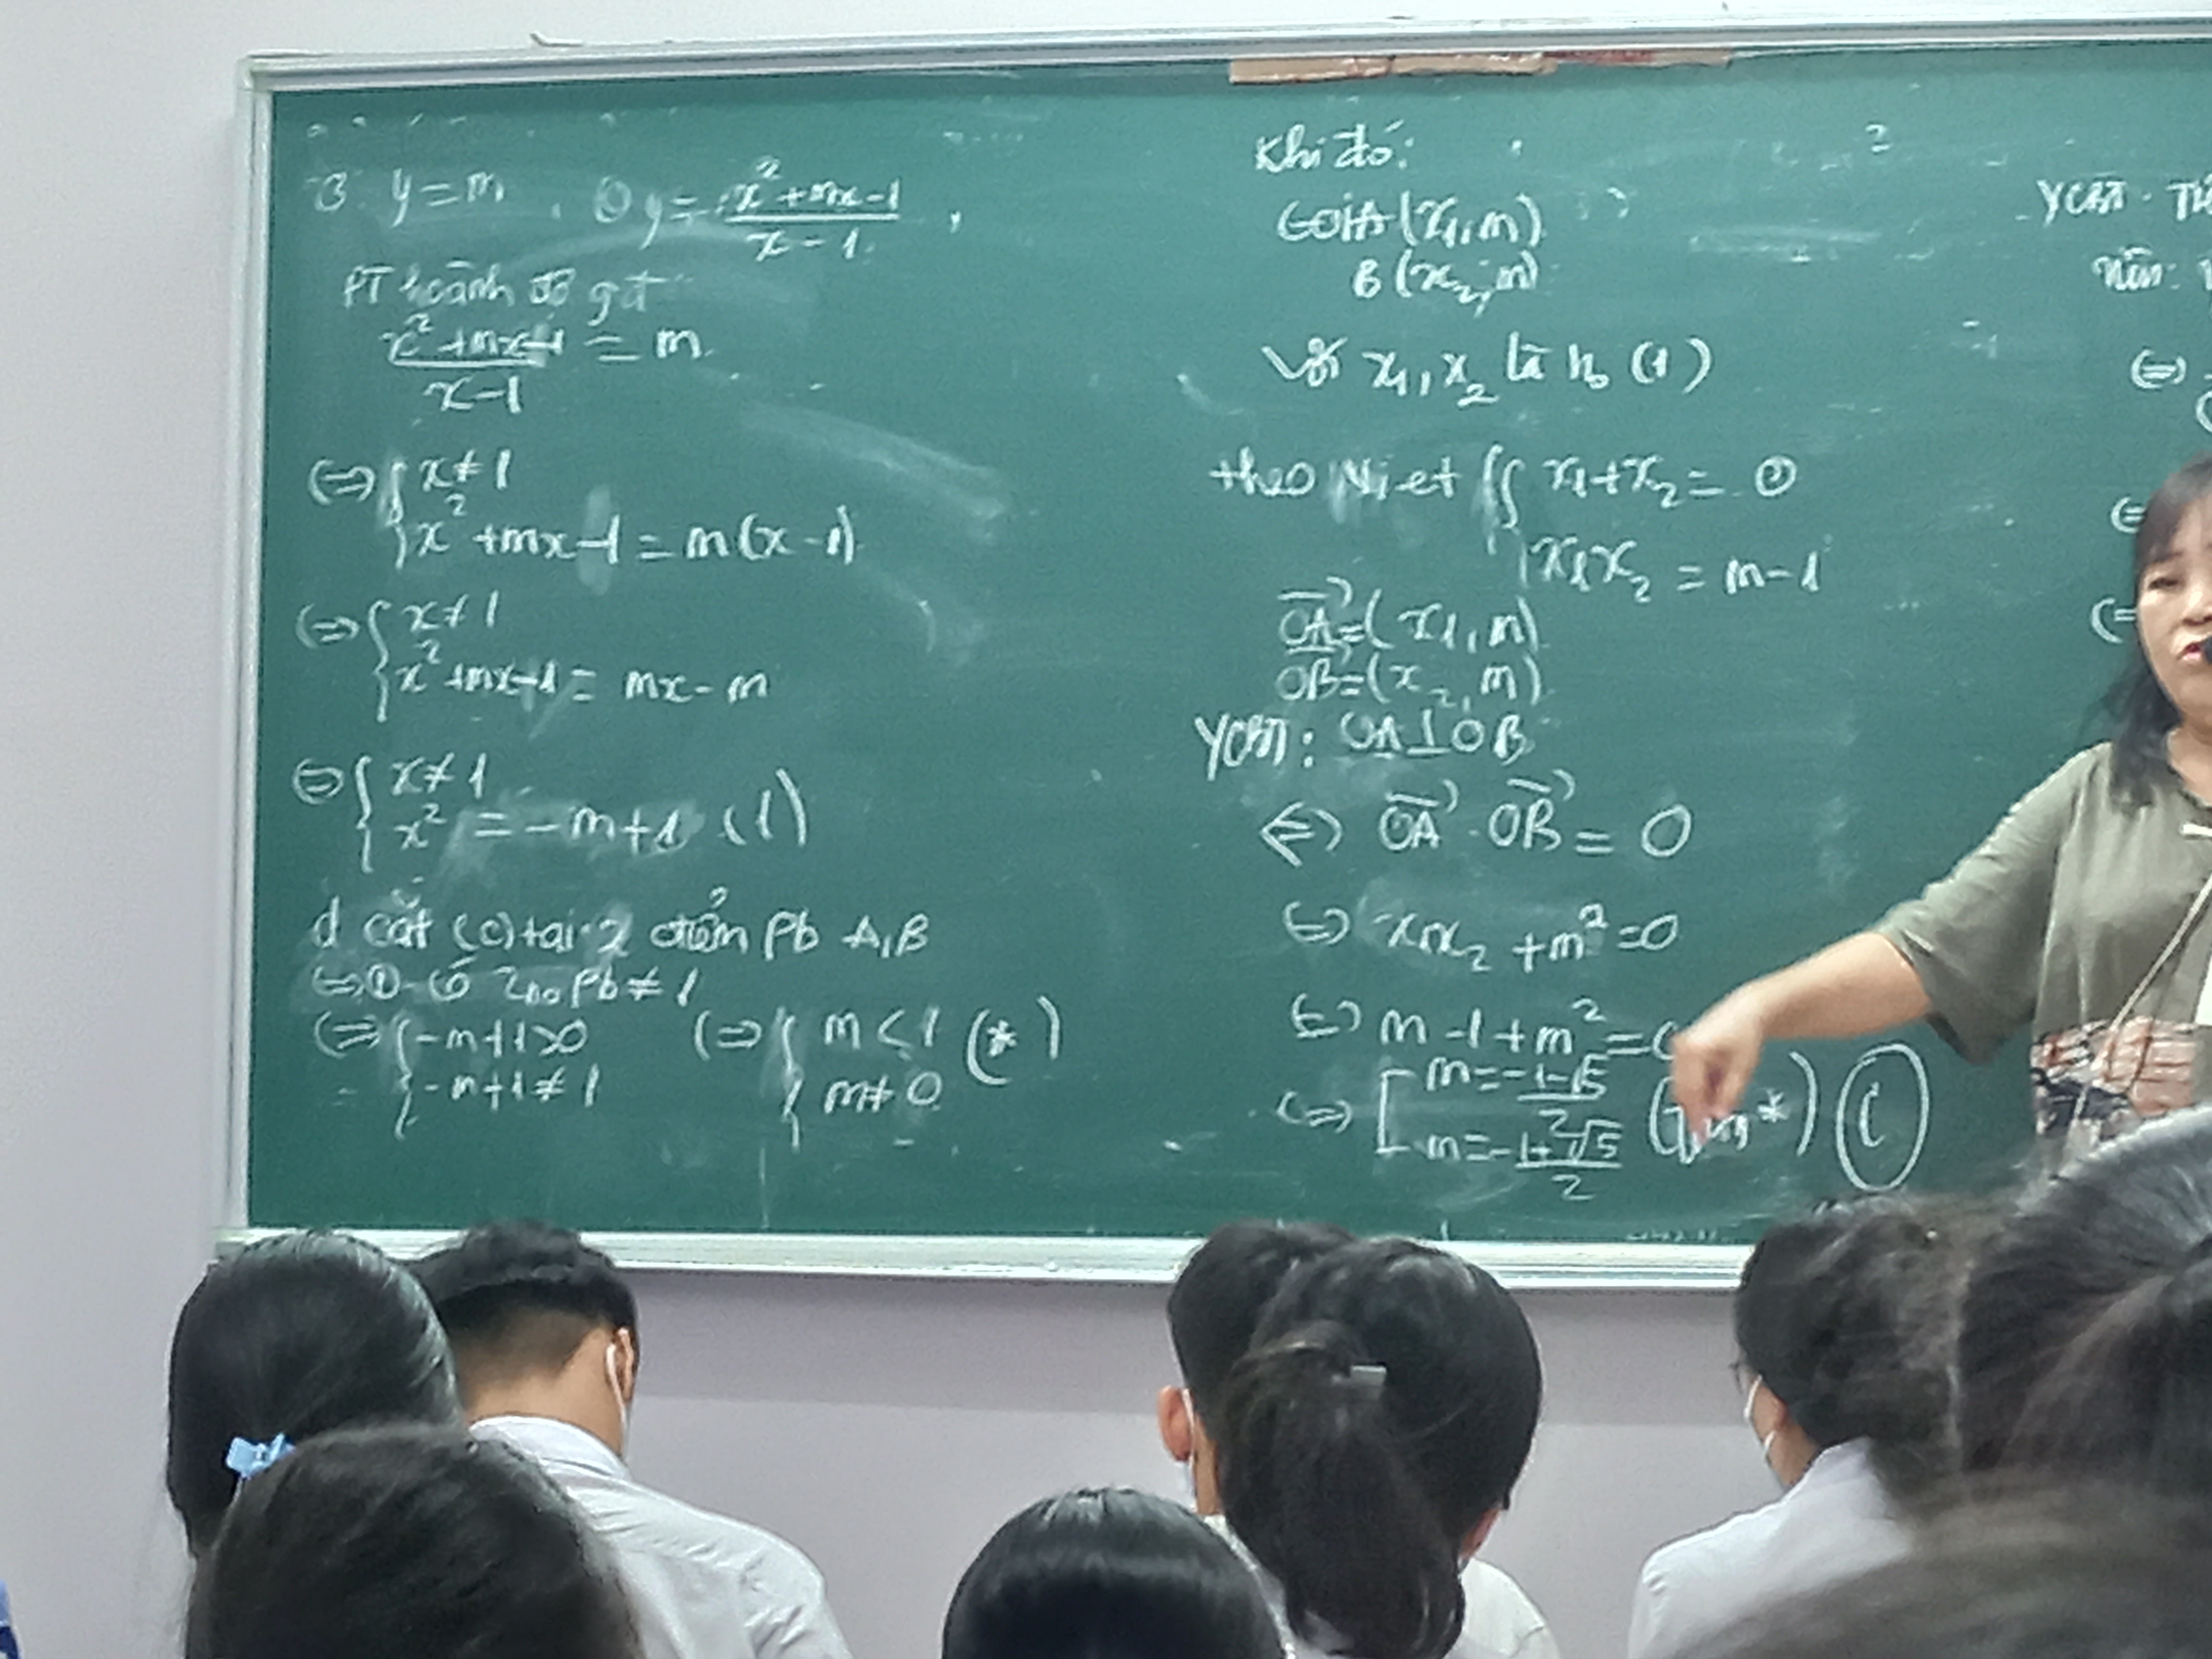 3. y = m, y = (x² + mx - 1)/(x - 1),
PT hoành độ gđ
(x² + mx - 1)/(x - 1) = m
(=> { x ≠ 1
x² + mx - 1 = m(x - 1)
(=> { x ≠ 1
x² + mx - 1 = mx - m
(=> { x ≠ 1
x² = -m + 1 (1)
d cắt (c) tại 2 điểm Pb A, B
(=> ① có 2 no Pb ≠ 1
(=> { -m + 1 > 0 (=> { m < 1 (*)
-m + 1 ≠ 1 m ≠ 0
Khi đó:
Gọi A (x₁, m)
B (x₂, m)
Với x₁, x₂ là no (1)
theo Viet { x₁ + x₂ = 0
x₁x₂ = m - 1
OA = (x₁, m)
OB = (x₂, m)
YCBT: OA ⊥ OB
<=> OA . OB = 0
(=> x₁x₂ + m² = 0
(=> m - 1 + m² =
(=> [ m = (-1 - √5)/2
m = (-1 + √5)/2 *)
YCBT.
nên:
(=>